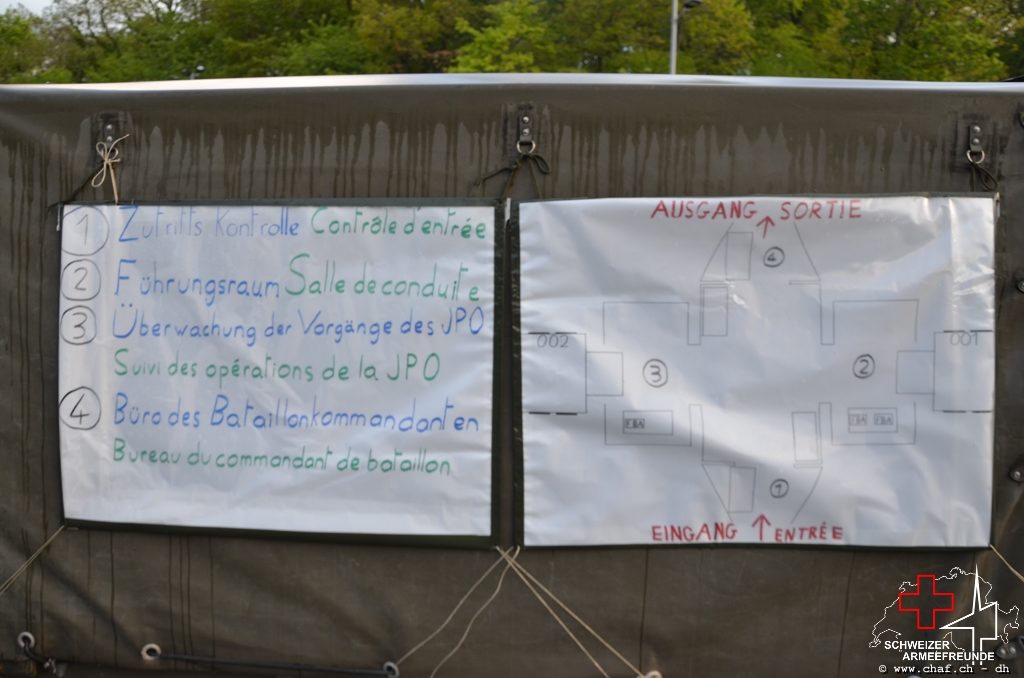 1 Zutritts Kontrolle Contrôle d'entrée
2 Führungsraum Salle de conduite
3 Überwachung der Vorgänge des JPO
Suivi des opérations de la JPO
4 Büro des Bataillonkommandanten
Bureau du commandant de bataillon
AUSGANG SORTIE
4
002
001
3
2
FBA
FBA FBA
1
EINGANG ENTRÉE
SCHWEIZER
ARMEEFREUNDE
© www.chaf.ch - dh